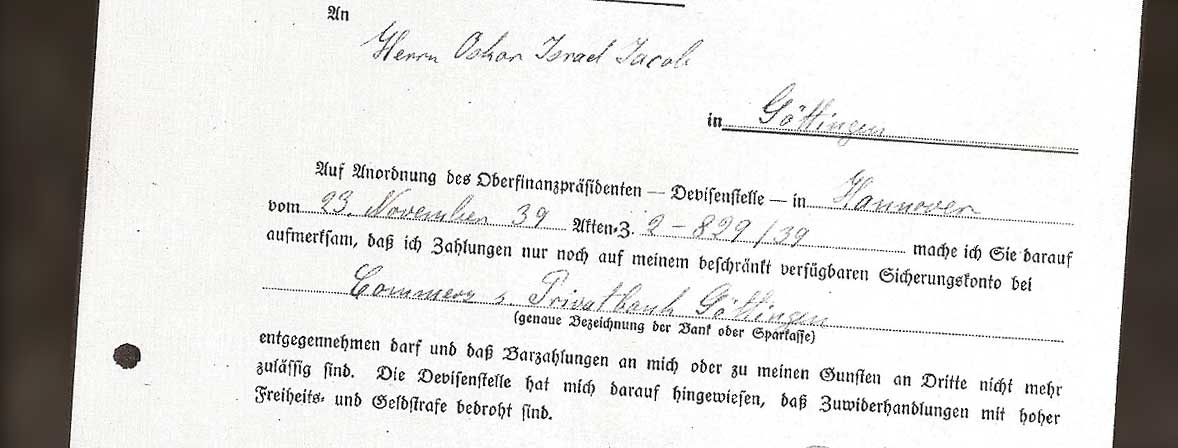 An
Herrn Oskar Israel Jacob
in Göttingen
Auf Anordnung des Oberfinanzpräsidenten — Devisenstelle — in Hannover
vom 23. November 39 Akten-Z. 2-829/39 mache ich Sie darauf
aufmerksam, daß ich Zahlungen nur noch auf meinem beschränkt verfügbaren Sicherungskonto bei
Commerz u. Privatbank Göttingen
(genaue Bezeichnung der Bank oder Sparkasse)
entgegennehmen darf und daß Barzahlungen an mich oder zu meinen Gunsten an Dritte nicht mehr
zulässig sind. Die Devisenstelle hat mich darauf hingewiesen, daß Zuwiderhandlungen mit hoher
Freiheits- und Geldstrafe bedroht sind.